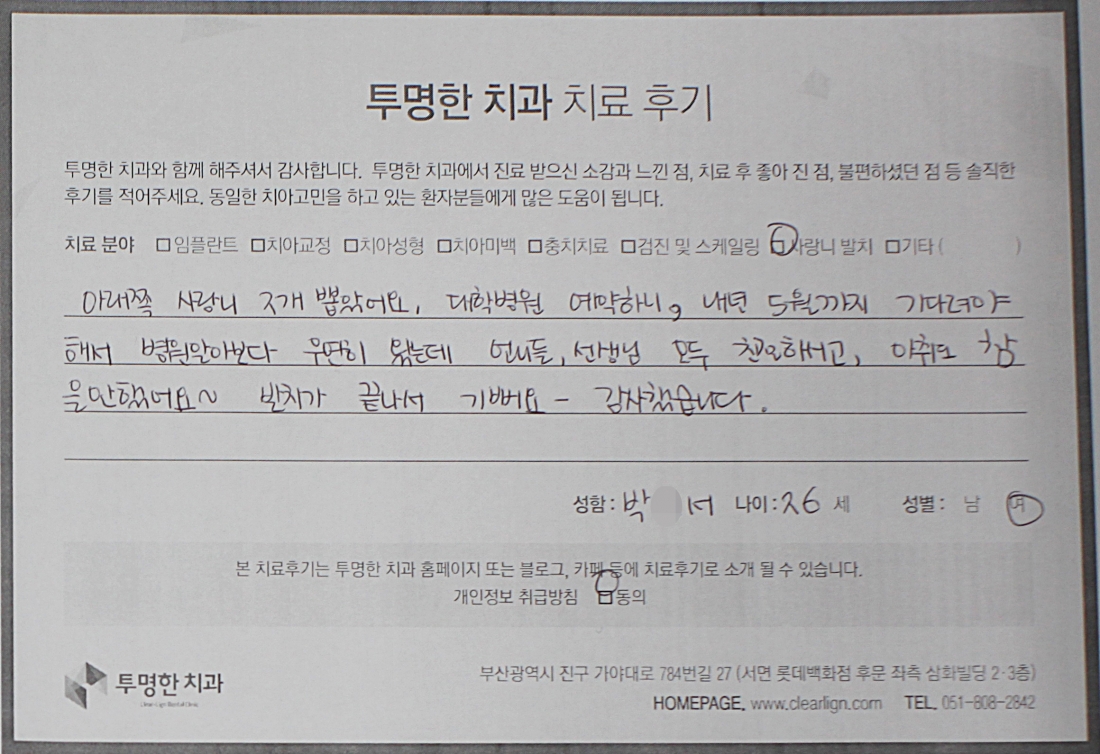 투명한 치과 치료 후기
투명한 치과와 함께 해주셔서 감사합니다. 투명한 치과에서 진료 받으신 소감과 느낀 점, 치료 후 좋아 진 점, 불편하셨던 점 등 솔직한
후기를 적어주세요. 동일한 치아고민을 하고 있는 환자분들에게 많은 도움이 됩니다.
치료 분야 □임플란트 □치아교정 □치아성형 □치아미백 □충치치료 □검진 및 스케일링 □사랑니 발치 □기타 ( )
아래쪽 사랑니 2개 뽑았어요, 대학병원 예약하니, 내년 5월까지 기다려야
해서 병원알아보다 우연히 왔는데 언니들, 선생님 모두 친절하시고, 마취도 잘
했어요~ 발치가 끝나서 기뻐요 - 감사했습니다.
성함 : 박 서 나이 : 26 세 성별 : 남 여
본 치료후기는 투명한 치과 홈페이지 또는 블로그, 카페 등에 치료후기로 소개 될 수 있습니다.
개인정보 취급방침 □동의
투명한 치과
부산광역시 진구 가야대로 784번길 27 (서면 롯데백화점 후문 좌측 삼화빌딩 2·3층)
HOMEPAGE. www.clearlign.com TEL. 051-808-2842